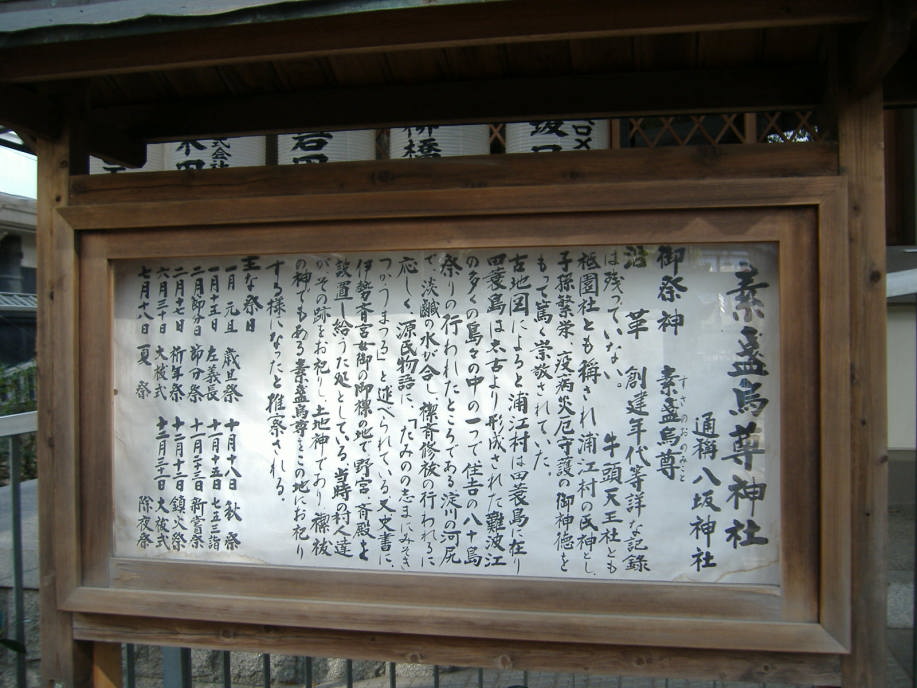 素盞烏尊神社
通稱八坂神社
御祭神 素盞烏尊
すさのおのみこと
沿革 創建年代等詳な記録
は残っていない。牛頭天王社とも
祗園社とも稱され浦江村の民神とし、
子孫繁栄、疫病災厄守護の御神徳を
もって篤く崇敬されていた
古地図によると浦江村は田蓑島に在り
田蓑島は太古より形成された難波江
の多くの島々の中の一つで住吉の八十島
祭りの行われたところである淀川の河尻
で、淡鹹の水が合し、禊斎修祓の行われるに
応しく、源氏物語に、「たみの志まにみそぎ
つかうまつる」と述べられている又史書に、
伊勢斎宮女御の御禊の地で野宮、斉殿と
設置し給うた処としている当時の村人達
がその跡をお祀りし土地神であり、禊祓
の神でもある素盞烏尊とこの地にお祀り
する様になったと推察される。
主な祭日
一月元旦 歳旦祭 十月十八日 秋祭
一月十五日 左義長 十一月十五日 七五三詣
二月節分日 節分祭 十一月二十三日 新嘗祭
二月十七日 祈年祭 十二月二十日 鎮火祭
六月三十日 大祓式 十二月三十一日 大祓式
七月十八日 夏祭 除夜祭
株式会社
岩田
柳橋